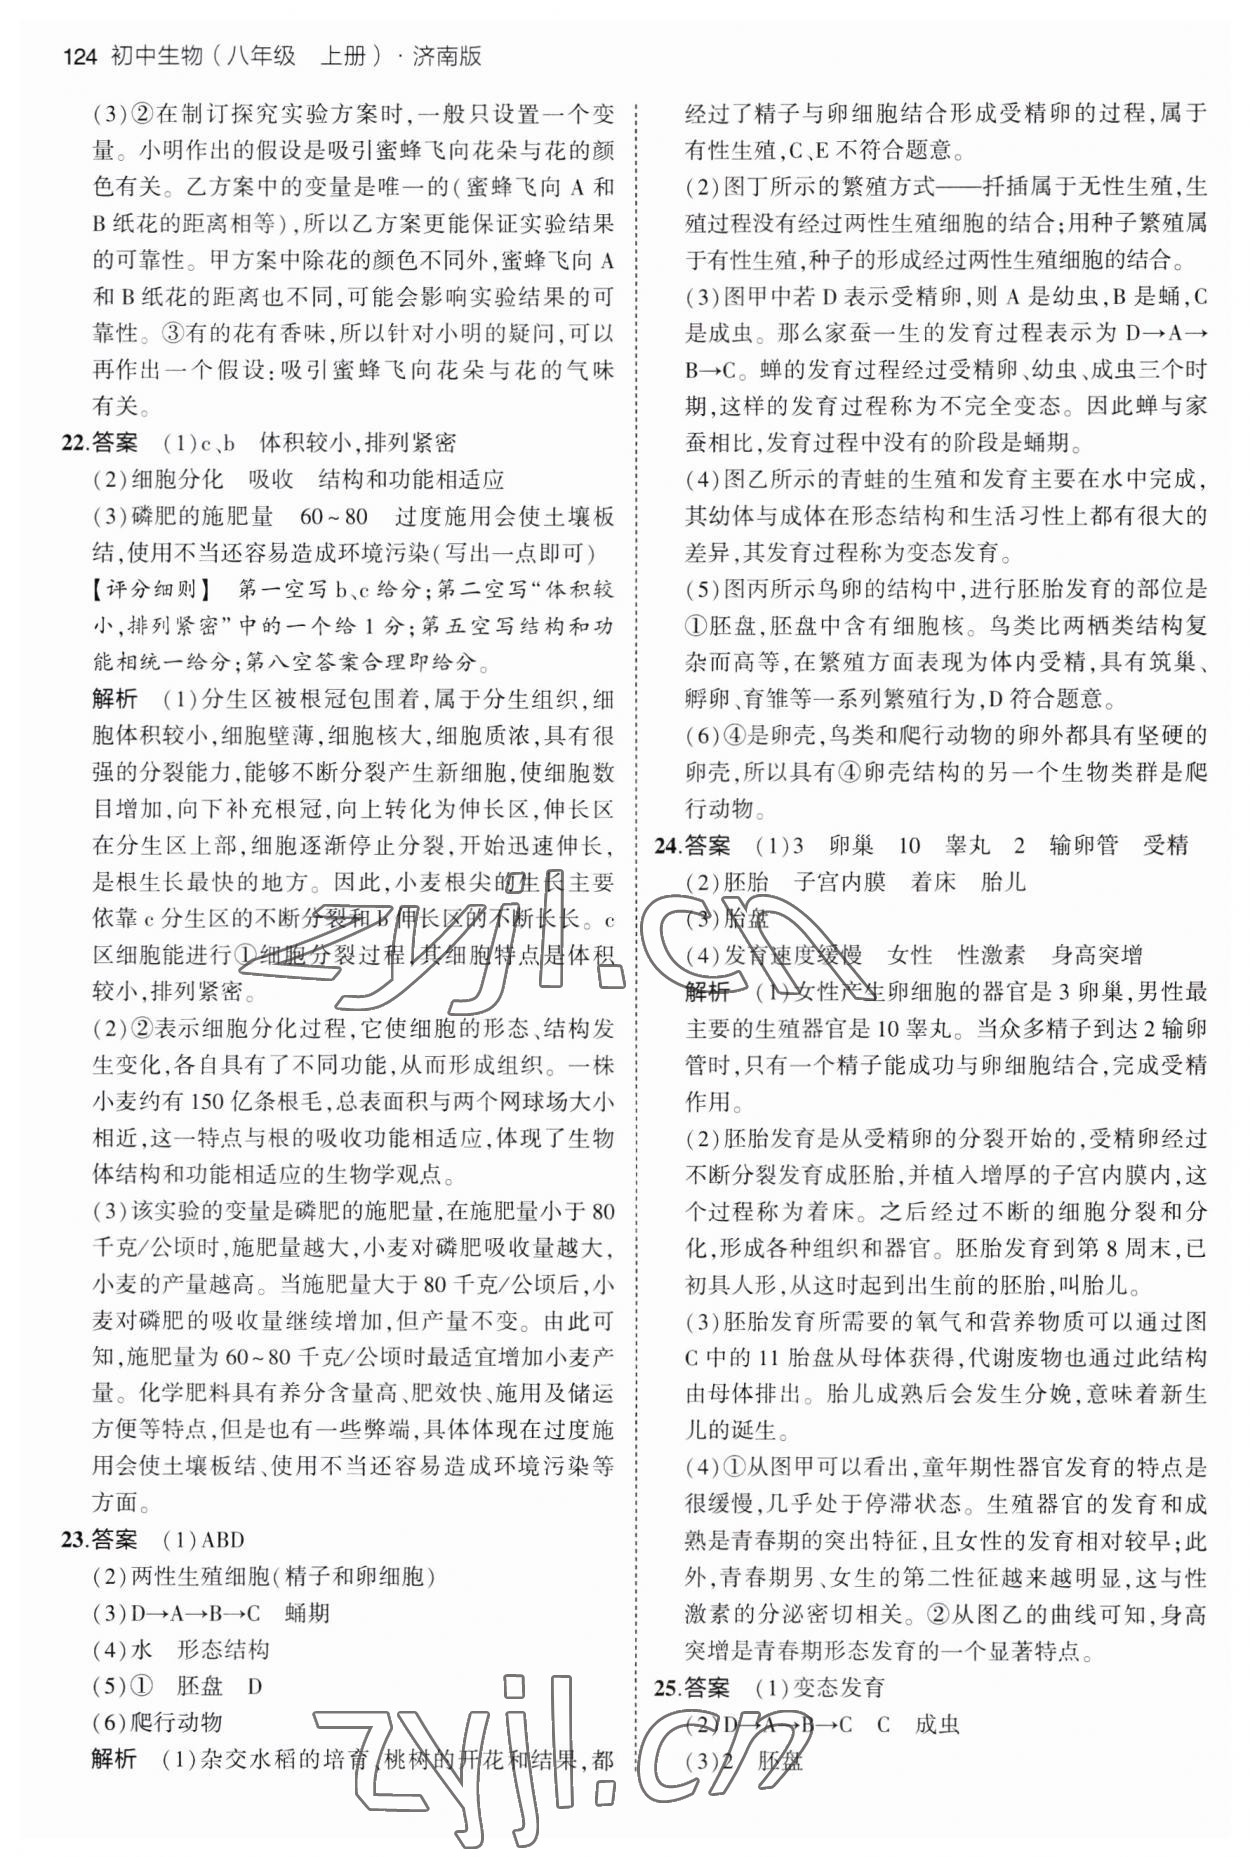 124 初中生物(八年级　上册)·济南版
(3)②在制订探究实验方案时,一般只设置一个变
量。小明作出的假设是吸引蜜蜂飞向花朵与花的颜
色有关。乙方案中的变量是唯一的(蜜蜂飞向 A 和
B 纸花的距离相等),所以乙方案更能保证实验结果
的可靠性。甲方案中除花的颜色不同外,蜜蜂飞向 A
和 B 纸花的距离也不同,可能会影响实验结果的可
靠性。③有的花有香味,所以针对小明的疑问,可以
再作出一个假设:吸引蜜蜂飞向花朵与花的气味
有关。
22.答案　(1)c、b　体积较小,排列紧密
(2)细胞分化　吸收　结构和功能相适应
(3)磷肥的施肥量　60~80　过度施用会使土壤板
结,使用不当还容易造成环境污染(写出一点即可)
【评分细则】　第一空写 b、c 给分;第二空写“体积较
小,排列紧密”中的一个给 1 分;第五空写结构和功
能相统一给分;第八空答案合理即给分。
解析　(1)分生区被根冠包围着,属于分生组织,细
胞体积较小,细胞壁薄,细胞核大,细胞质浓,具有很
强的分裂能力,能够不断分裂产生新细胞,使细胞数
目增加,向下补充根冠,向上转化为伸长区,伸长区
在分生区上部,细胞逐渐停止分裂,开始迅速伸长,
是根生长最快的地方。因此,小麦根尖的生长主要
依靠 c 分生区的不断分裂和 b 伸长区的不断长长。c
区细胞能进行①细胞分裂过程,其细胞特点是体积
较小,排列紧密。
(2)②表示细胞分化过程,它使细胞的形态、结构发
生变化,各自具有了不同功能,从而形成组织。一株
小麦约有 150 亿条根毛,总表面积与两个网球场大小
相近,这一特点与根的吸收功能相适应,体现了生物
体结构和功能相适应的生物学观点。
(3)该实验的变量是磷肥的施肥量,在施肥量小于 80
千克/公顷时,施肥量越大,小麦对磷肥吸收量越大,
小麦的产量越高。当施肥量大于 80 千克/公顷后,小
麦对磷肥的吸收量继续增加,但产量不变。由此可
知,施肥量为 60~80 千克/公顷时最适宜增加小麦产
量。化学肥料具有养分含量高、肥效快、施用及储运
方便等特点,但是也有一些弊端,具体体现在过度施
用会使土壤板结、使用不当还容易造成环境污染等
方面。
23.答案　(1)ABD
(2)两性生殖细胞(精子和卵细胞)
(3)D→A→B→C　蛹期
(4)水　形态结构
(5)①　胚盘　D
(6)爬行动物
解析　(1)杂交水稻的培育、桃树的开花和结果,都
经过了精子与卵细胞结合形成受精卵的过程,属于
有性生殖,C、E 不符合题意。
(2)图丁所示的繁殖方式——扦插属于无性生殖,生
殖过程没有经过两性生殖细胞的结合;用种子繁殖属
于有性生殖,种子的形成经过两性生殖细胞的结合。
(3)图甲中若 D 表示受精卵,则 A 是幼虫,B 是蛹,C
是成虫。那么家蚕一生的发育过程表示为 D→A→
B→C。蝉的发育过程经过受精卵、幼虫、成虫三个时
期,这样的发育过程称为不完全变态。因此蝉与家
蚕相比,发育过程中没有的阶段是蛹期。
(4)图乙所示的青蛙的生殖和发育主要在水中完成,
其幼体与成体在形态结构和生活习性上都有很大的
差异,其发育过程称为变态发育。
(5)图丙所示鸟卵的结构中,进行胚胎发育的部位是
①胚盘,胚盘中含有细胞核。鸟类比两栖类结构复
杂而高等,在繁殖方面表现为体内受精,具有筑巢、
孵卵、育雏等一系列繁殖行为,D 符合题意。
(6)④是卵壳,鸟类和爬行动物的卵外都具有坚硬的
卵壳,所以具有④卵壳结构的另一个生物类群是爬
行动物。
24.答案　(1)3　卵巢　10　睾丸　2　输卵管　受精
(2)胚胎　子宫内膜　着床　胎儿
(3)胎盘
(4)发育速度缓慢　女性　性激素　身高突增
解析　(1)女性产生卵细胞的器官是 3 卵巢,男性最
主要的生殖器官是 10 睾丸。当众多精子到达 2 输卵
管时,只有一个精子能成功与卵细胞结合,完成受精
作用。
(2)胚胎发育是从受精卵的分裂开始的,受精卵经过
不断分裂发育成胚胎,并植入增厚的子宫内膜内,这
个过程称为着床。之后经过不断的细胞分裂和分
化,形成各种组织和器官。胚胎发育到第 8 周末,已
初具人形,从这时起到出生前的胚胎,叫胎儿。
(3)胚胎发育所需要的氧气和营养物质可以通过图
C 中的 11 胎盘从母体获得,代谢废物也通过此结构
由母体排出。胎儿成熟后会发生分娩,意味着新生
儿的诞生。
(4)①从图甲可以看出,童年期性器官发育的特点是
很缓慢,几乎处于停滞状态。生殖器官的发育和成
熟是青春期的突出特征,且女性的发育相对较早;此
外,青春期男、女生的第二性征越来越明显,这与性
激素的分泌密切相关。②从图乙的曲线可知,身高
突增是青春期形态发育的一个显著特点。
25.答案　(1)变态发育
(2)D→A→B→C　C　成虫
(3)2　胚盘
zyjl.cn
zyjl.cn